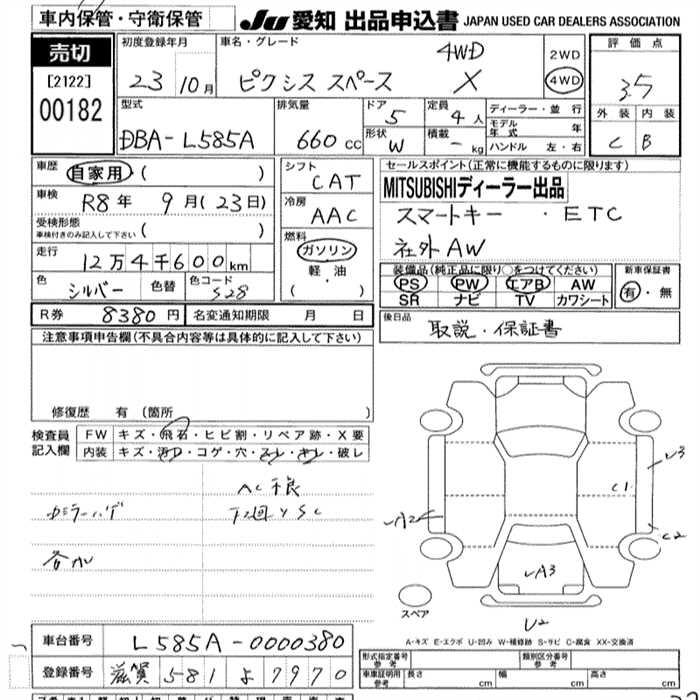 車内保管・守衛保管
JU 愛知 出品申込書 JAPAN USED CAR DEALERS ASSOCIATION
売切
[2122]
00182
初度登録年月
23 10月
車名・グレード
4WD
ピクシス スペース X
2WD
4WD
評価点
3.5
外装 内装
C B
型式
DBA-L585A
排気量
660cc
ドア 5
形状 W
定員 4人
積載 - kg
ディーラー・並行
モデル年式 年
ハンドル 左・右
車歴 自家用 ( )
車検 R8年 9月(23日)
受検形態
車検付きのみ記入して下さい ( )
走行
12万4千600km
色 シルバー 色替 色コード S28
シフト
CAT
冷房
AAC
燃料
ガソリン
軽・油
( )
セールスポイント(正常に機能するものに限ります)
MITSUBISHIディーラー出品
スマートキー ・ETC
社外AW
装備品(純正品に限り○をつけてください)
PS PW エアB AW
SR ナビ TV カワシート
新車保証書
有・無
R券 8380円 名変通知期限 月 日
後日品
取説・保証書
注意事項申告欄(不具合内容等は具体的に記入して下さい)
修復歴 有 (箇所 )
検査員記入欄
FW キズ・飛石・ヒビ割・リペア跡・X要
内装 キズ・汚れ・コゲ・穴・スレ・キレ・破レ
AC不良
カラーハゲ 下廻りSC
A2
C1
C2
A3
U2
スペア
A-キズ E-エクボ U-凹み W-補修跡 S-サビ C-腐食 XX-交換済
車台番号 L585A-0000380
登録番号 滋賀 581 よ 7970
形式指定番号 参考
類別区分番号 参考
車庫証明用 参考 長さ cm 幅 cm 高さ cm